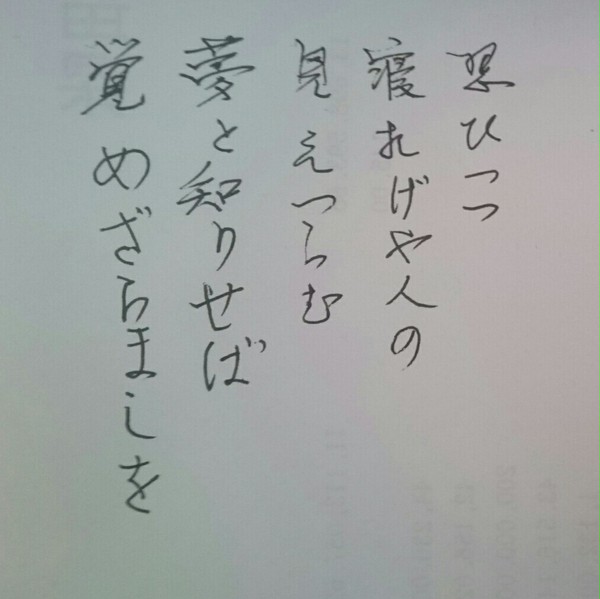 思ひつつ
寝れげや人の
見えつらむ
夢と知りせば
覚めざらましを